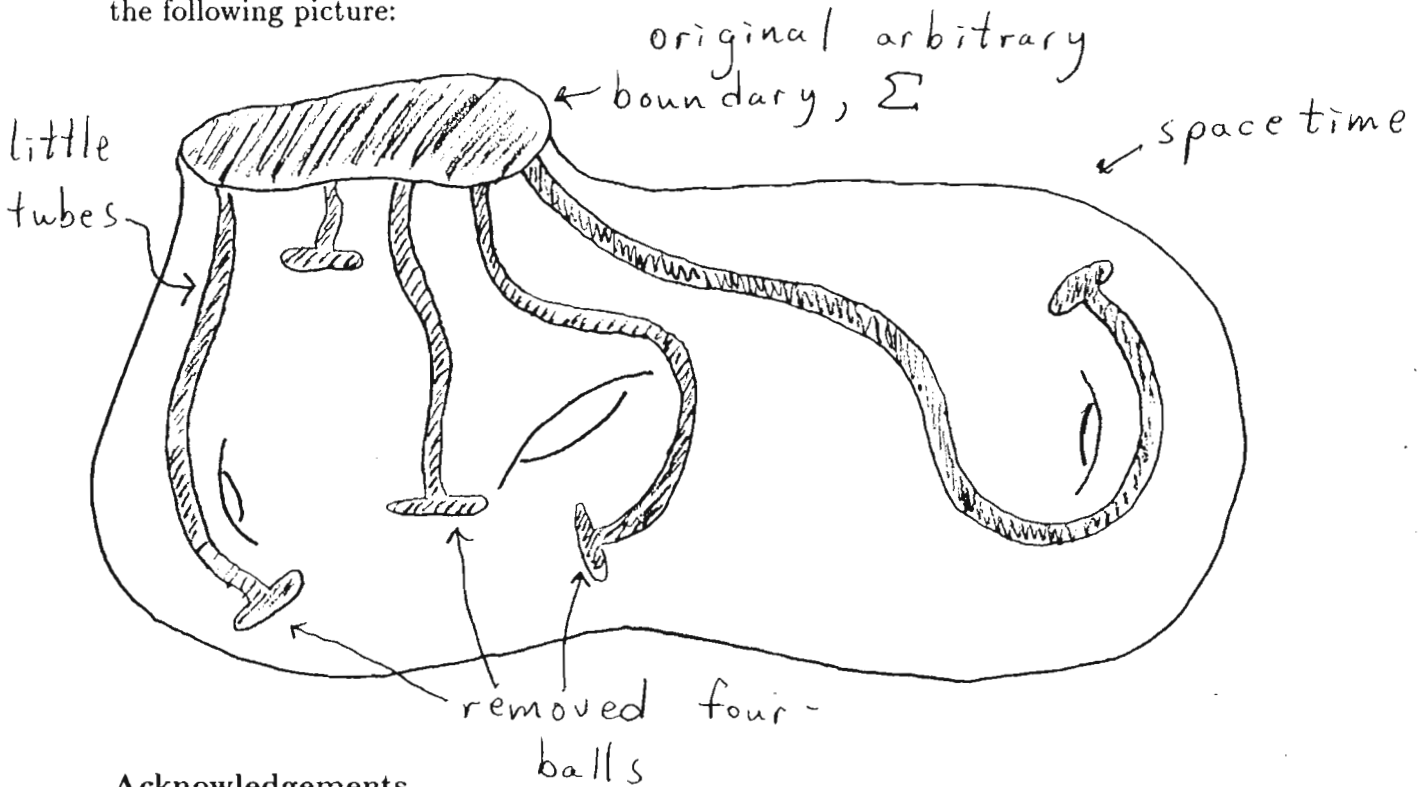 the following picture:
original arbitrary
boundary, Σ
spacetime
little
tubes
removed four-
balls
Acknowledgements